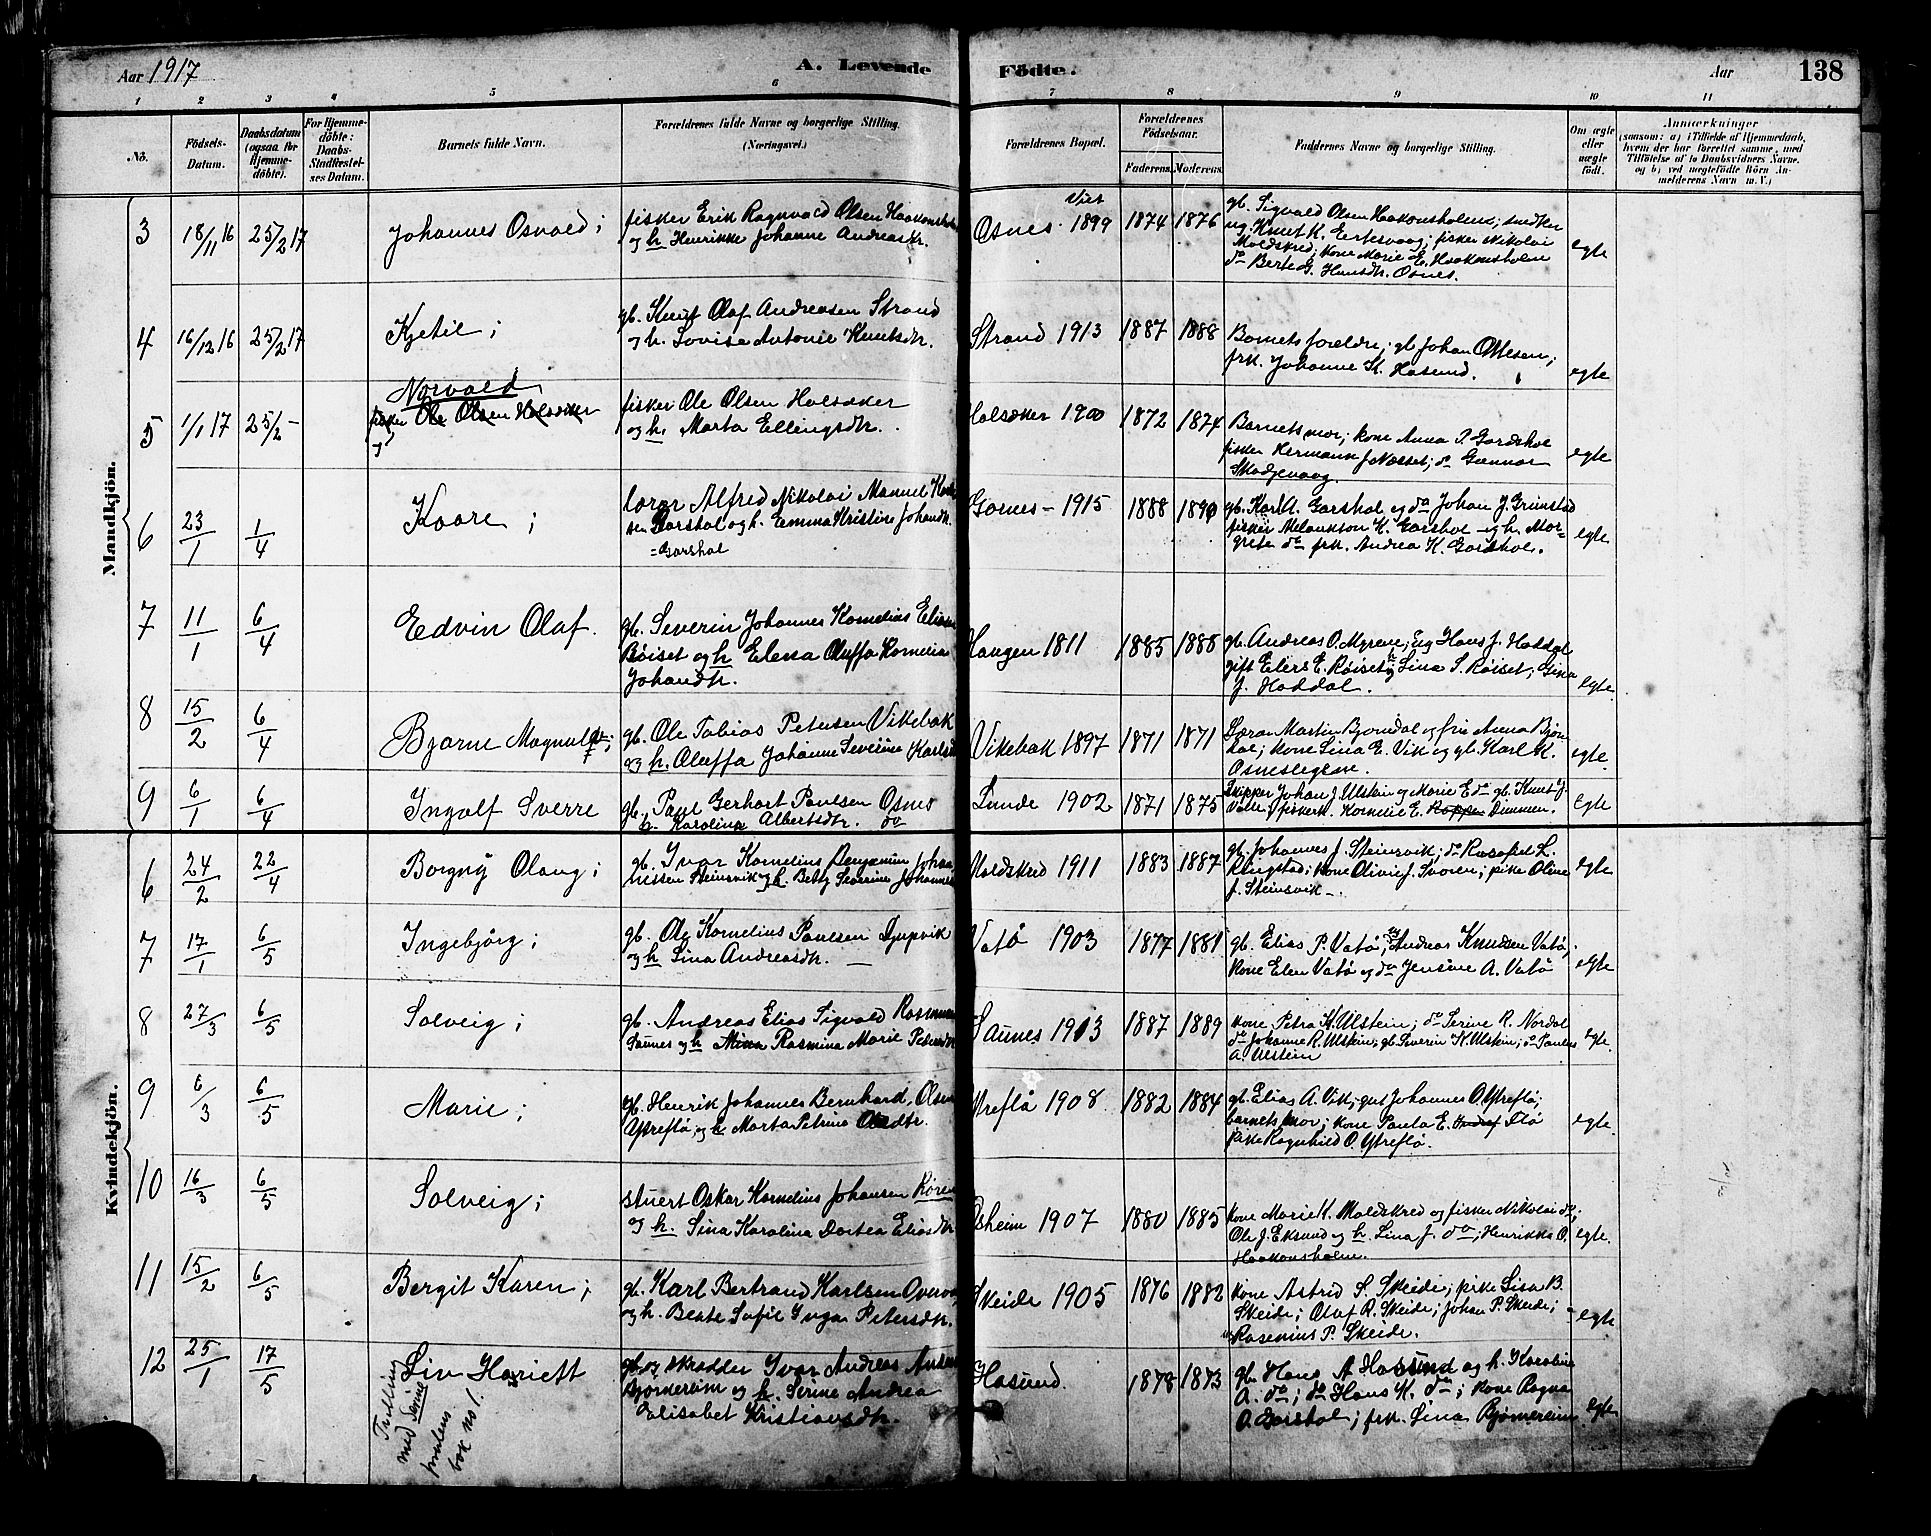 Aar 1917
A. Levende Födte.
Aar
138
1 2 3 4 5 6 7 8 9 10 11
No.
Födsels-
Datum.
Daabsdatum
(ogsaa for
Hjemme-
döbte).
For Hjemme-
döbte:
Daabs-
Stadfæstel-
ses Datum.
Barnets fulde Navn.
Forældrenes fulde Navne og borgerlige Stilling.
(Næringsvei.)
Forældrenes Bopæl.
Forældrenes
Födselsaar.
Faderens. Moderens.
Faddernes Navne og borgerlige Stilling.
Om ægte
eller
uægte
födt.
Anmærkninger
(saasom: a) i Tilfælde af Hjemmedaab,
hvem der har forrettet samme, med
Tilföielse af to Daabsvidners Navne.
og b) ved uægtefödte Börn An-
melderens Navn m. V.)
Mandkjön.
3
18/11 16
25/2 17
Johannes Osvald;
fisker Erik Ragnvald Olsen Haakonsholm
og h. Henrikke Johanne Andreasdtr.
Viet
Osnes 1899
1874
1876
gb. Sigvald Olsen Haakonsholm; snedker
ug. Knut K. Eertesvaag; fisker Nikolai
Moldskred; kone Marie E. Haakonsholm
do Berte G. Hansdtr. Osnes.
egte
4
16/12 16
25/2 17
Kjetil;
gb. Knut Olaf Andreasen Strand
og h. Lovise Antonie Knutsdtr.
Strand 1913
1887
1888
Barnets foreldre; gb Johan Ottesen;
frk. Johanne K. Hasund.
egte
5
1/1 17
25/2 -
Norvald
fisker Ole Olsen Holsæker
og
fisker Ole Olsen Holsæker
og h. Marta Ellingsdtr.
Holsæker 1900
1872
1874
Barnets mor; kone Anna P. Gardshol
fisker Hermann J. Nesset; do Gunnar
Skodjevaag.
egte
6
23/1
1/4
Kaare;
lærer Alfred Nikolai Manuel
sen Garshol og h. Emma Kristine Johandtr.
= Garshol
Garnes - 1915
1888
1890
gb. Karl A. Garshol og do Johan J. Grimstad
fisker Melankton K. Garshol og h. Mar=
grete do frk. Andrea K. Gardshol.
egte
7
11/1
6/4
Edvin Olaf.
gb. Severin Johannes Kornelius Elias
Röiset og h Elena Oluffa Kornelia
Johandtr.
Haugen 1811
1885
1888
gb. Andreas O. Myrene; ug Hans J. Haddal
gift Elers E. Röiset og h Lina S. Röiset; Gina
J. Haddal.
egte
8
15/2
6/4
Bjarne Magnulf;
gb. Ole Tobias Petersen Vikebak
og h. Oluffa Johanne Severine Karls
Vikebak 1897
1871
1871
Lærer Martin Bjørndal og fru Anna Bjørn
dal; kone Lina E. Vik og gb. Karl K.
Osneslegene.
egte.
9
6/1
6/4
Ingolf Sverre
gb. Paul Gerhart Paulsen Osnes
h. Karolina Albertsdtr. do
Lunde 1902
1871
1875
Skipper Johan J. Ulstein og Marie E do gb. Knut J.
Valle; fiskerk. Kornelie E. Dimmen.
egte
Kvindekjön.
6
24/2
22/4
Borgny Olaug;
gb. Ivar Kornelius Benjamin Johan
nissen Steinsvik og h. Betty Severine Johannes
Moldskred 1911
1883
1887
gb. Johannes J. Steinsvik; do Rasofiel L.
Ringstad; kone Olivie J. Svoren; pike Oline
J. Steinsvik -.
egte
7
17/1
6/5
Ingebjörg;
gb. Ole Kornelius Paulsen Djupvik
og h Lina Andreasdtr. —
Vatö 1903
1877
1881
gb. Elias P. Vatö; ug Andreas Knudsen Vatö;
kone Elen Vatö og do Jensine A. Vatö
egte
8
27/3
6/5
Solveig;
gb. Andreas Elias Sigvald Rasmus
Saunes og h Mina Rasmina Marie Petersdtr
Saunes 1913
1887
1889
kone Petra K. Ulstein; do Serine R. Nordal
do Johanne R. Ulstein; gb. Severin K. Ulstein; do Paulus
A. Ulstein
egte.
9
6/3
6/5
Marie;
gb. Henrik Johannes Bernhard Olsen
Ytreflö, og h Marta Petrina Olsdtr.
Ytreflö 1908
1882
1884
gb. Elias A. Vik; gut Johannes O. Ytreflö;
barnets mor; kone Paula E. Flö
pike Ragnhild O. Ytreflö.
egte.
10
16/3
6/5
Solveig;
stuert Oskar Kornelius Johansen Rören
og h. Lina Karolina Dortea Eliasdtr
Osheim 1907
1880
1885
kone Marie K. Moldskred og fisker Nikolai do;
Ole J. Eksund og h. Lina J. do; Henrikka O.
Haakonsholm.
egte.
11
15/2
6/5
Bergit Karen;
gb. Karl Bertrand Karlsen Overvaa
og h. Beate Sofie Inga Petersdtr.
Skeide 1905
1876
1882
kone Astrid S. Skeide; pike Lisa B.
Skeide; Olaf R. Skeide; Johan P. Skeide;
ug Rasenius P. Skeide.
egte
12
25/1
17/5
Liv Hariett
Tvilling
med Senie
prestens
bok no 1.
gb. og skrædder Ivar Andreas
Bjørnereim og h. Serine Andrea
Elisabet Kristiansdtr.
Hasund.
1878
1873
gb. Hans A Hasund og h. Karoline
A. do; do Hans K. do; kone Ragna
O. Garshol; frk. Lina Bjørnereim
egte